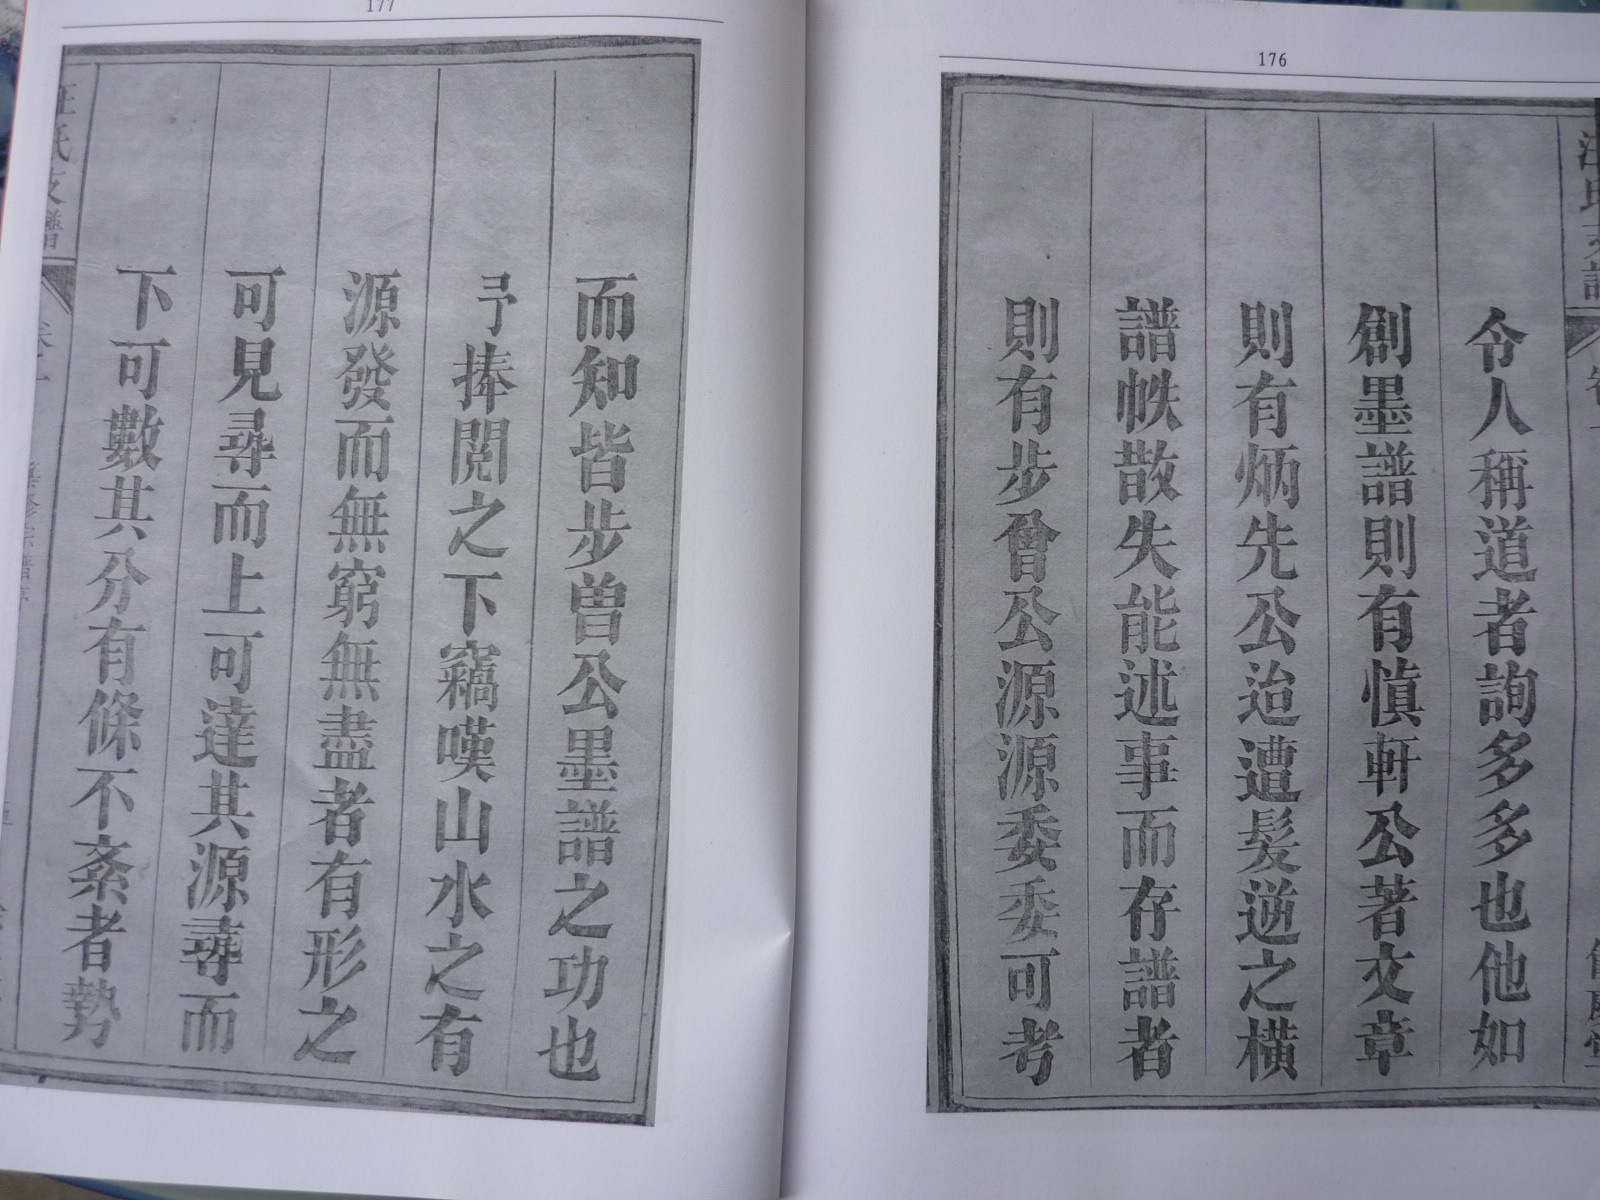 176
令人稱道者詢多多也他如
創墨譜則有慎軒公著文章
則有炳先公迨遭髮逆之橫
譜帙散失能述事而存譜者
則有步曾公源源委委可考
177
而知皆步曾公墨譜之功也
予捧閱之下竊嘆山水之有
源發而無窮無盡者有形之
可見尋而上可達其源尋而
下可數其分有條不紊者勢
汪氏支譜